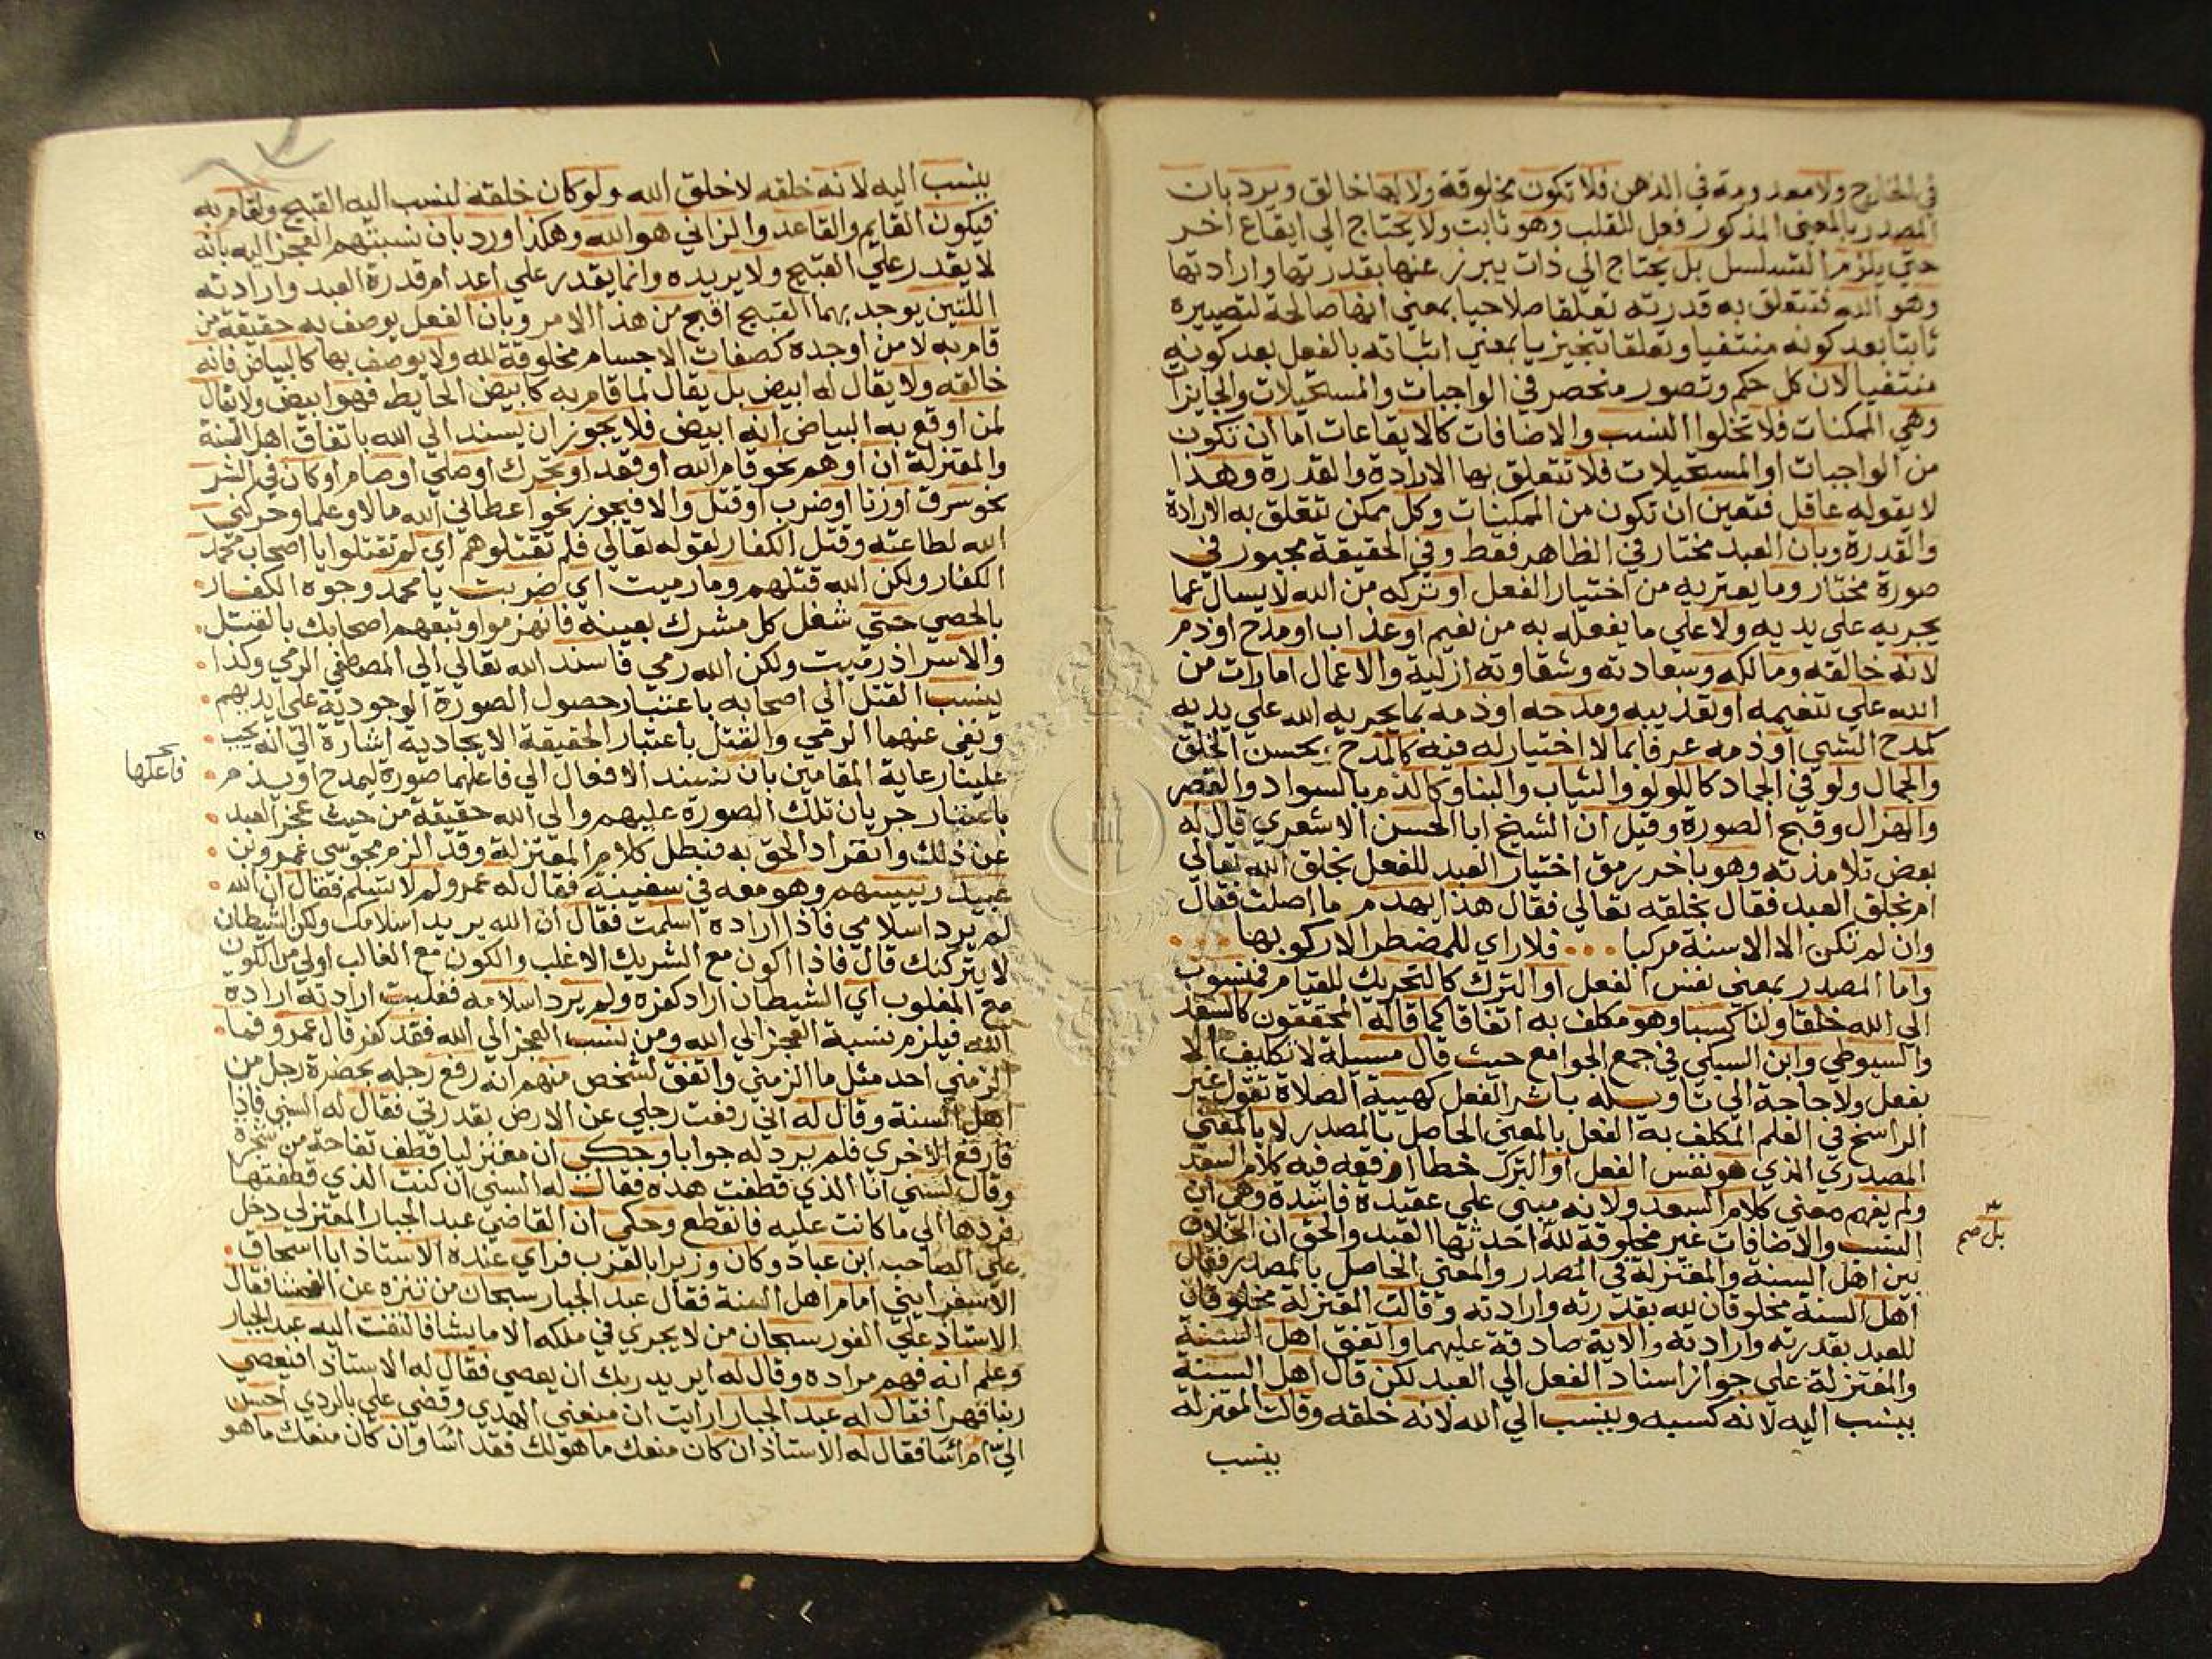 في الخارج ولا معدومة في الذهن فلا تكون مخلوقة ولا لها خالق ويرد بان
المصدر بالمعنى المذكور فعل للقلب وهو ثابت ولا يحتاج الي ايقاع اخر
حتي يلزم التسلسل بل يحتاج الي ذات يبرز عنها بقدرتها وارادتها
وهو الله فتتعلق به قدرته تعلقا صلاحيا بمعني انها صالحة لتصييره
ثابتا بعد كونه منتفيا وتعلقا تنجيزيا بمعني اثباته بالفعل بعد كونه
منتفيا لان كل حكم وتصور منحصر في الواجبات والمستحيلات والجايزات
وهي الممكنات فلا تخلوا النسب والاضافات كالايقاعات اما ان تكون
من الواجبات او المستحيلات فلا تتعلق بها الارادة والقدرة وهذا
لا يقوله عاقل فتعين ان تكون من الممكنات وكل ممكن تتعلق به الارادة
والقدرة وبان العبد مختار في الظاهر فقط وفي الحقيقة مجبور في
صورة مختار وما يعتريه من اختيار الفعل او تركه من الله لا يسال عما
يجريه علي يديه ولا علي ما يفعله به من نعيم او عذاب او مدح او ذم
لانه خالقه ومالكه وسعادته وشقاوته ازلية والاعمال امارات من
الله علي تنعيمه او تعذيبه ومدحه او ذمه بما يجريه الله علي يديه
كمدح الشي او ذمه عرفا بما لا اختيار له فيه كالمدح بحسن الخلق
والجمال ولو في الجماد كاللولو والثياب والبنا وكالذم بالسواد والقصر
والهزال وقبح الصورة وقيل ان الشيخ ابا الحسن الاشعري قال له
بعض تلامذته وهو باخر رمق اختيار العبد للفعل بخلق الله تعالي
ام بخلق العبد فقال بخلقه تعالي فقال هذا يهدم ما اصلت فقال
وان لم تكن الا الاسنة مركبا ... فلا راي للمضطر الا ركوبها ...
واما المصدر بمعني نفس الفعل او الترك كالتحريك للقيام فمنسوب
الي الله خلقا ولنا كسبا وهو مكلف به اتفاقا كما قاله المحققون كالسعد
والسيوطي وابن السبكي في جمع الجوامع حيث قال مسيلة لا تكليف الا
بفعل ولا حاجة الي تاويله باثر الفعل كهيية الصلاة تقول غير
الراسخ في العلم المكلف به الفعل بالمعني الحاصل بالمصدر لا بالمعني
المصدري الذي هو نفس الفعل او الترك خطا اوقعه فيه كلام السعد
ولم يفهم معني كلام السعد ولانه مبني علي عقيدة فاسدة وهي ان
النسب والاضافات غير مخلوقة لله احدثها العبد والحق ان الخلاف
بين اهل السنة والمعتزلة في المصدر والمعني الحاصل بالمصدر فقال
اهل السنة مخلوقان لله بقدرته وارادته وقالت المعتزلة مخلوقان
للعبد بقدرته وارادته والاية صادقة عليهما واتفق اهل السنة
والمعتزلة علي جواز اسناد الفعل الي العبد لكن قال اهل السنة
ينسب اليه لانه كسبه وينسب الي الله لانه خلقه وقالت المعتزلة
ينسب
بل صم
ينسب اليه لانه خلقه لا خلق الله ولو كان خلقه لنسب اليه القبيح ولقام به
فيكون القايم والقاعد والزاني هو الله وهكذا ورد بان نسبتهم العجز اليه بانه
لا يقدر علي القبيح ولا يريده وانما يقدر علي اعدام قدرة العبد وارادته
اللتين يوجد بهما القبيح اقبح من هذا الامر وبان الفعل يوصف به حقيقة من
قام به لا من اوجده كصفات الاجسام مخلوقة لله ولا يوصف بها كالبياض فانه
خالقه ولا يقال له ابيض بل يقال لما قام به كابيض الحايط فهو ابيض ولا يقال
لمن اوقع به البياض انه ابيض فلا يجوز ان يسند الي الله باتفاق اهل السنة
والمعتزلة ان اوهم نحو قام الله او قعد او تحرك او صلي او صام او كان في الشر
نحو سرق او زنا او ضرب او قتل والا فيجوز نحو اعطاني الله مالا وعلما وحركني
الله لطاعته وقتل الكفار لقوله تعالي فلم تقتلوهم اي لم تقتلوا يا اصحاب محمد
الكفار ولكن الله قتلهم وما رميت اي ضربت يا محمد وجوه الكفار
بالحصي حتي شغل كل مشرك بعينه فانهزموا وتبعهم اصحابك بالقتل
والاسر اذ رميت ولكن الله رمي فاسند الله تعالي الي المصطفي الرمي وكذا
ينسب القتل الي اصحابه باعتبار حصول الصورة الوجودية علي ايديهم
ونفي عنهما الرمي والقتل باعتبار الحقيقة الايجادية اشارة الي انه يجب
علينا رعاية المقامين بان نسند الافعال الي فاعلهما صورة ليمدح او يذم
فاعلها
باعتبار جريان تلك الصورة عليهم والي الله حقيقة من حيث عجز العبد
عن ذلك وانفراد الحق به فبطل كلام المعتزلة وقد الزم مجوسي عمرو بن
عبيد رييسهم وهو معه في سفينة فقال له عمرو لم لا تسلم فقال ان الله
لم يرد اسلامي فاذا اراده اسلمت فقال ان الله يريد اسلامك ولكن الشيطان
لا يتركنك قال فاذا اكون مع الشريك الاغلب والكون مع الغالب اولي من الكون
مع المغلوب اي الشيطان اراد كفره ولم يرد اسلامه فغلبت ارادته ارادة
الله فيلزم نسبة العجز الي الله ومن نسب العجز الي الله فقد كفر قال عمرو فما
الزمني احد مثل ما الزمني واتفق لشخص منهم انه رفع رجله بحضرة رجل من
اهل السنة وقال له اني رفعت رجلي عن الارض بقدرتي فقال له السني فاذا
فارفع الاخري فلم يرد له جوابا وحكي ان معتزليا قطف تفاحة من شجرة
وقال لسني انا الذي قطفت هذه فقال له السني ان كنت الذي قطفتها
فردها الي ما كانت عليه فانقطع وحكي ان القاضي عبد الجبار المعتزلي دخل
علي الصاحب ابن عباد وكان وزيرا بالغرب فراي عنده الاستاذ ابا اسحاق
الاسفرايني امام اهل السنة فقال عبد الجبار سبحان من تنزه عن الفحشا فقال
الاستاذ علي الفور سبحان من لا يجري في ملكه الا ما يشا فالتفت اليه عبد الجبار
وعلم انه فهم مراده وقال له ايريد ربك ان يعصي فقال له الاستاذ افيعصي
ربنا قهرا فقال له عبد الجبار ارايت ان منعني الهدي وقضي علي بالردي احسن
الي ام اسا فقال له الاستاذ ان كان منعك ما هو لك فقد اسا وان كان منعك ما هو